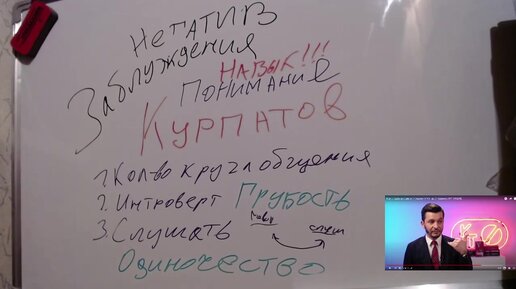 Негатив
Заблуждения
Навык!!!
Понимание
Курпатов
1. Кол-во круг общения
2. Интроверт Грубость
3. Слушать
Одиночество